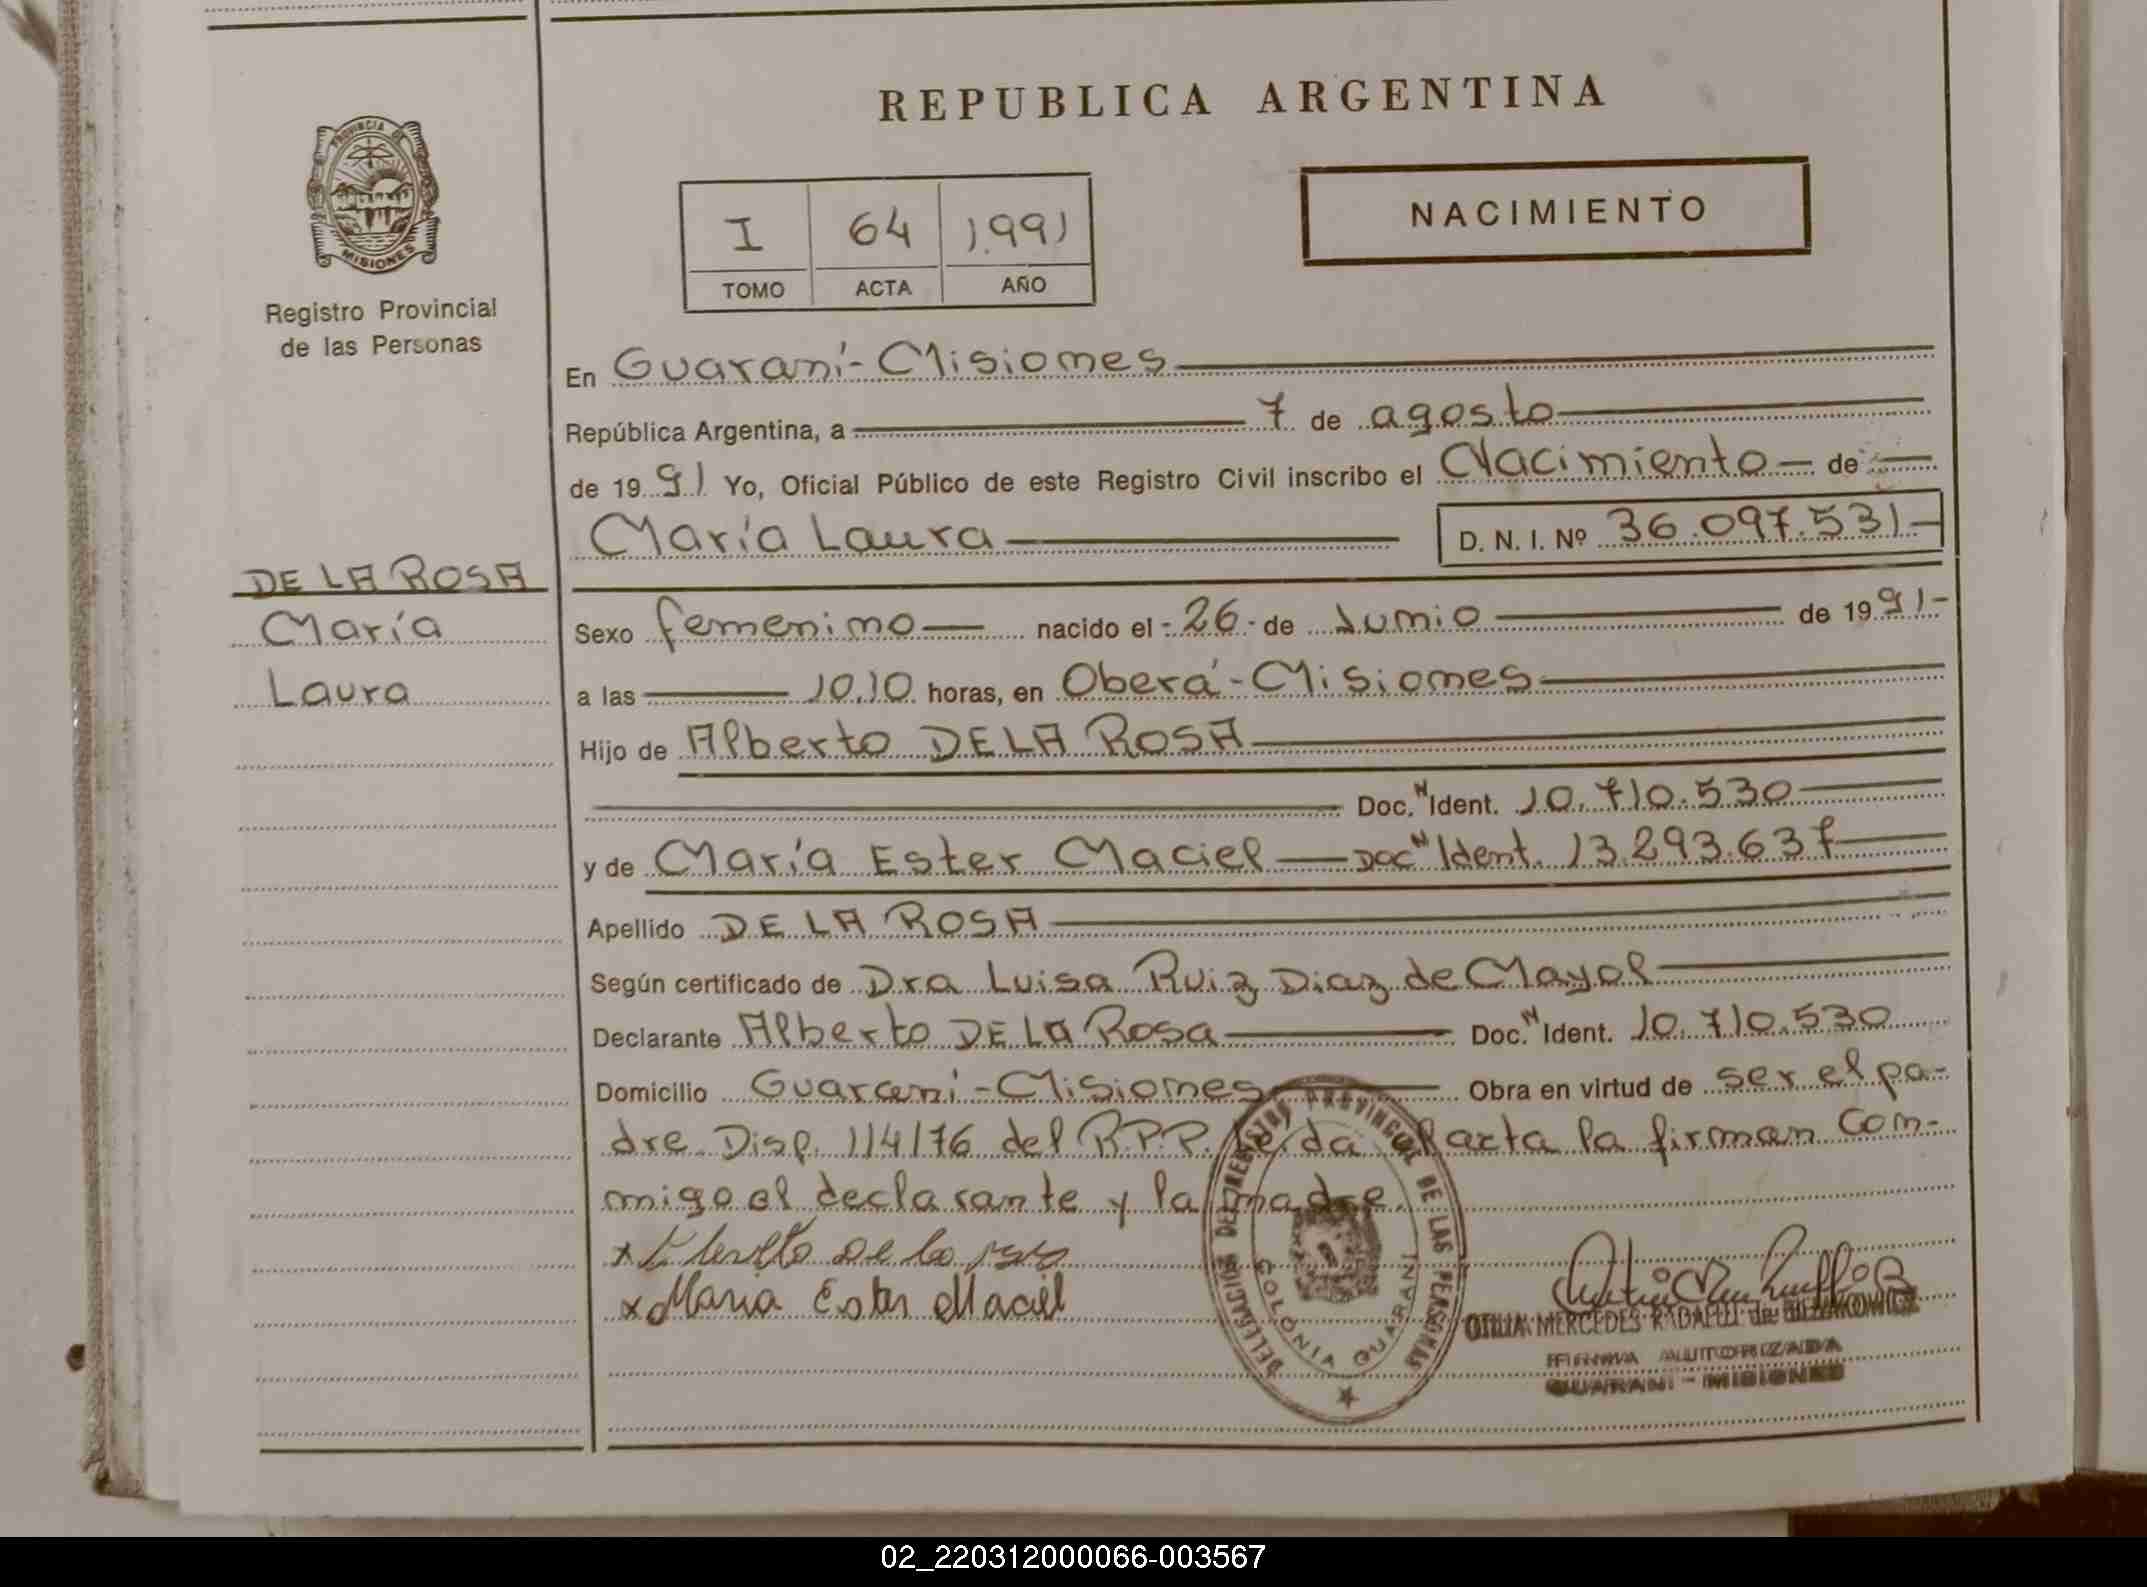 REPUBLICA ARGENTINA
PROVINCIA DE
MISIONES
Registro Provincial
de las Personas
I 64 1.991
TOMO ACTA AÑO
NACIMIENTO
En Guaraní-Misiones
República Argentina, a 7 de agosto
de 19 91 Yo, Oficial Público de este Registro Civil inscribo el Nacimiento de
María Laura D. N. I. Nº 36.097.531
DE LA ROSA
María
Laura
Sexo femenino nacido el 26 de Junio de 19 91
a las 10,10 horas, en Oberá-Misiones
Hijo de Alberto DE LA ROSA
Doc. N Ident. 10.710.530
y de María Ester Maciel Doc N Ident. 13.293.637
Apellido DE LA ROSA
Según certificado de Dra Luisa Ruiz Diaz de Mayol
Declarante Alberto DE LA Rosa Doc. N Ident. 10.710.530
Domicilio Guaraní-Misiones Obra en virtud de ser el pa-
dre. Disp. 114/76 del R.P.P. Leída el acta la firman con-
migo el declarante y la madre.
x Alberto de la rosa
x Maria Ester Maciel
DELEGACION DEL REGISTRO PROVINCIAL DE LAS PERSONAS
COLONIA GUARANI
OTILIA MERCEDES RADAELLI de
FIRMA AUTORIZADA
GUARANI - MISIONES
02_220312000066-003567